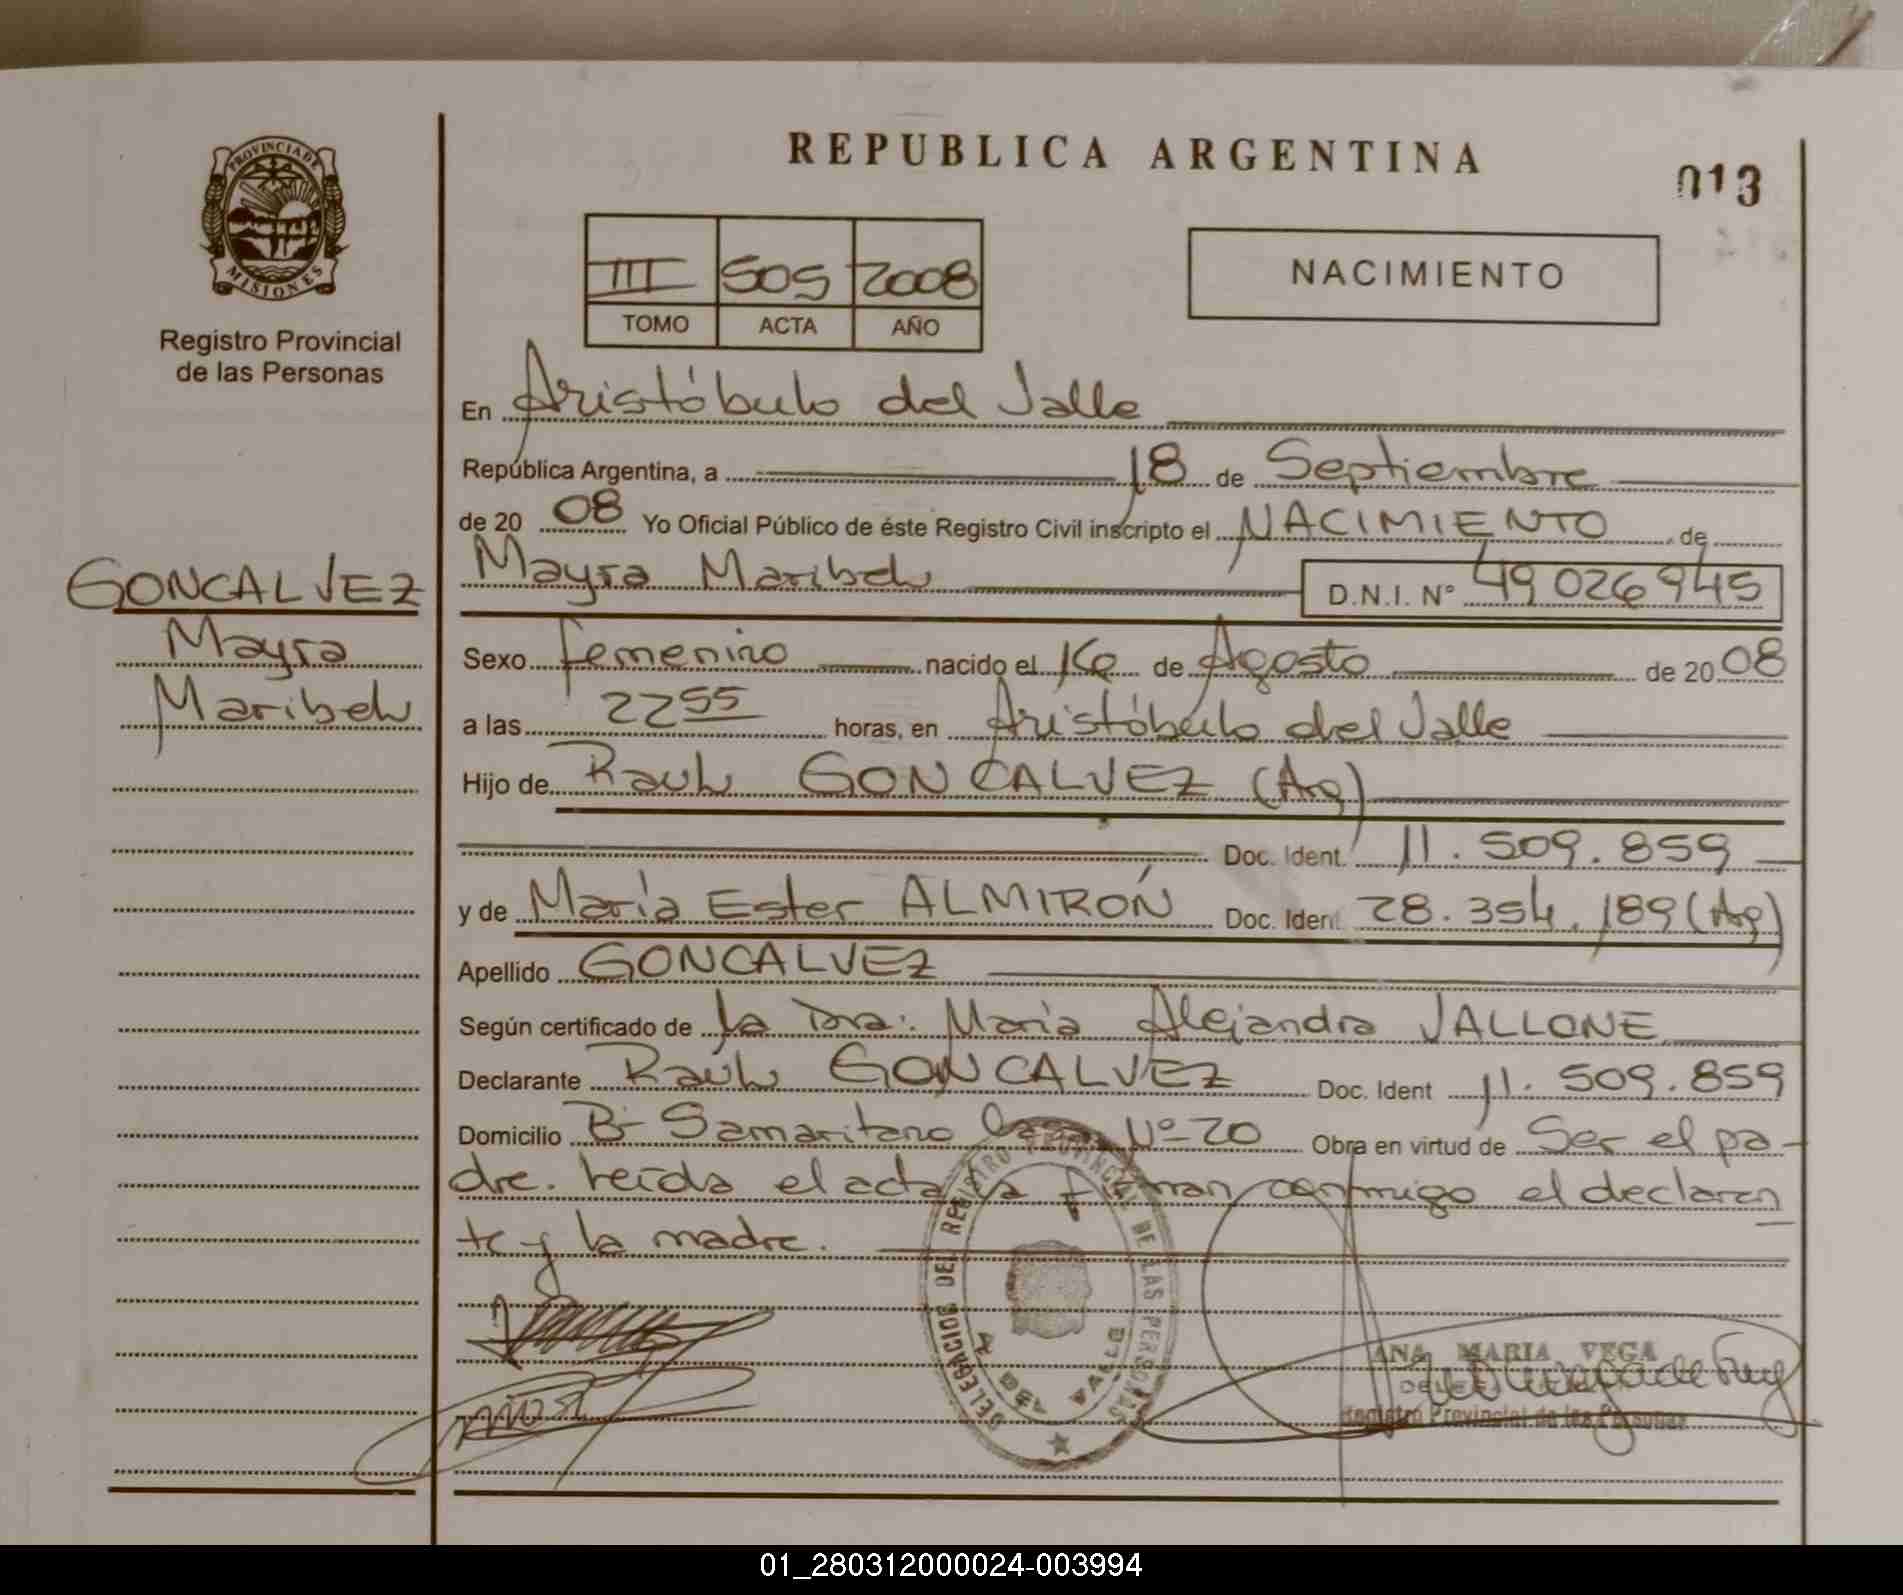 PROVINCIA DE
MISIONES
Registro Provincial
de las Personas
GONCALVEZ
Mayra
Maribel
REPUBLICA ARGENTINA
013
III 505 2008
TOMO ACTA AÑO
NACIMIENTO
En Aristóbulo del Valle
República Argentina, a 18 de Septiembre
de 20 08 Yo Oficial Público de éste Registro Civil inscripto el NACIMIENTO de
Mayra Maribel D.N.I. Nº 49026945
Sexo femenino nacido el de Agosto de 20 08
a las 22 55 horas, en Aristóbulo del Valle
Hijo de Raul GONCALVEZ (Arg)
Doc. Ident. 11.509.859
y de María Ester ALMIRÓN Doc. Ident. 28.354.189 (Arg)
Apellido GONCALVEZ
Según certificado de la Dra. María Alejandra VALLONE
Declarante Raúl GONCALVEZ Doc. Ident 11.509.859
Domicilio Bº Samaritano Casa Nº 20 Obra en virtud de Ser el pa-
dre. Leída el acta la firman conmigo el declaran
te y la madre.
DELEGACION DEL REGISTRO PROVINCIAL DE LAS PERSONAS
A DEL VALLE
ANA MARIA VEGA
Registro Provincial de las Personas
01_280312000024-003994